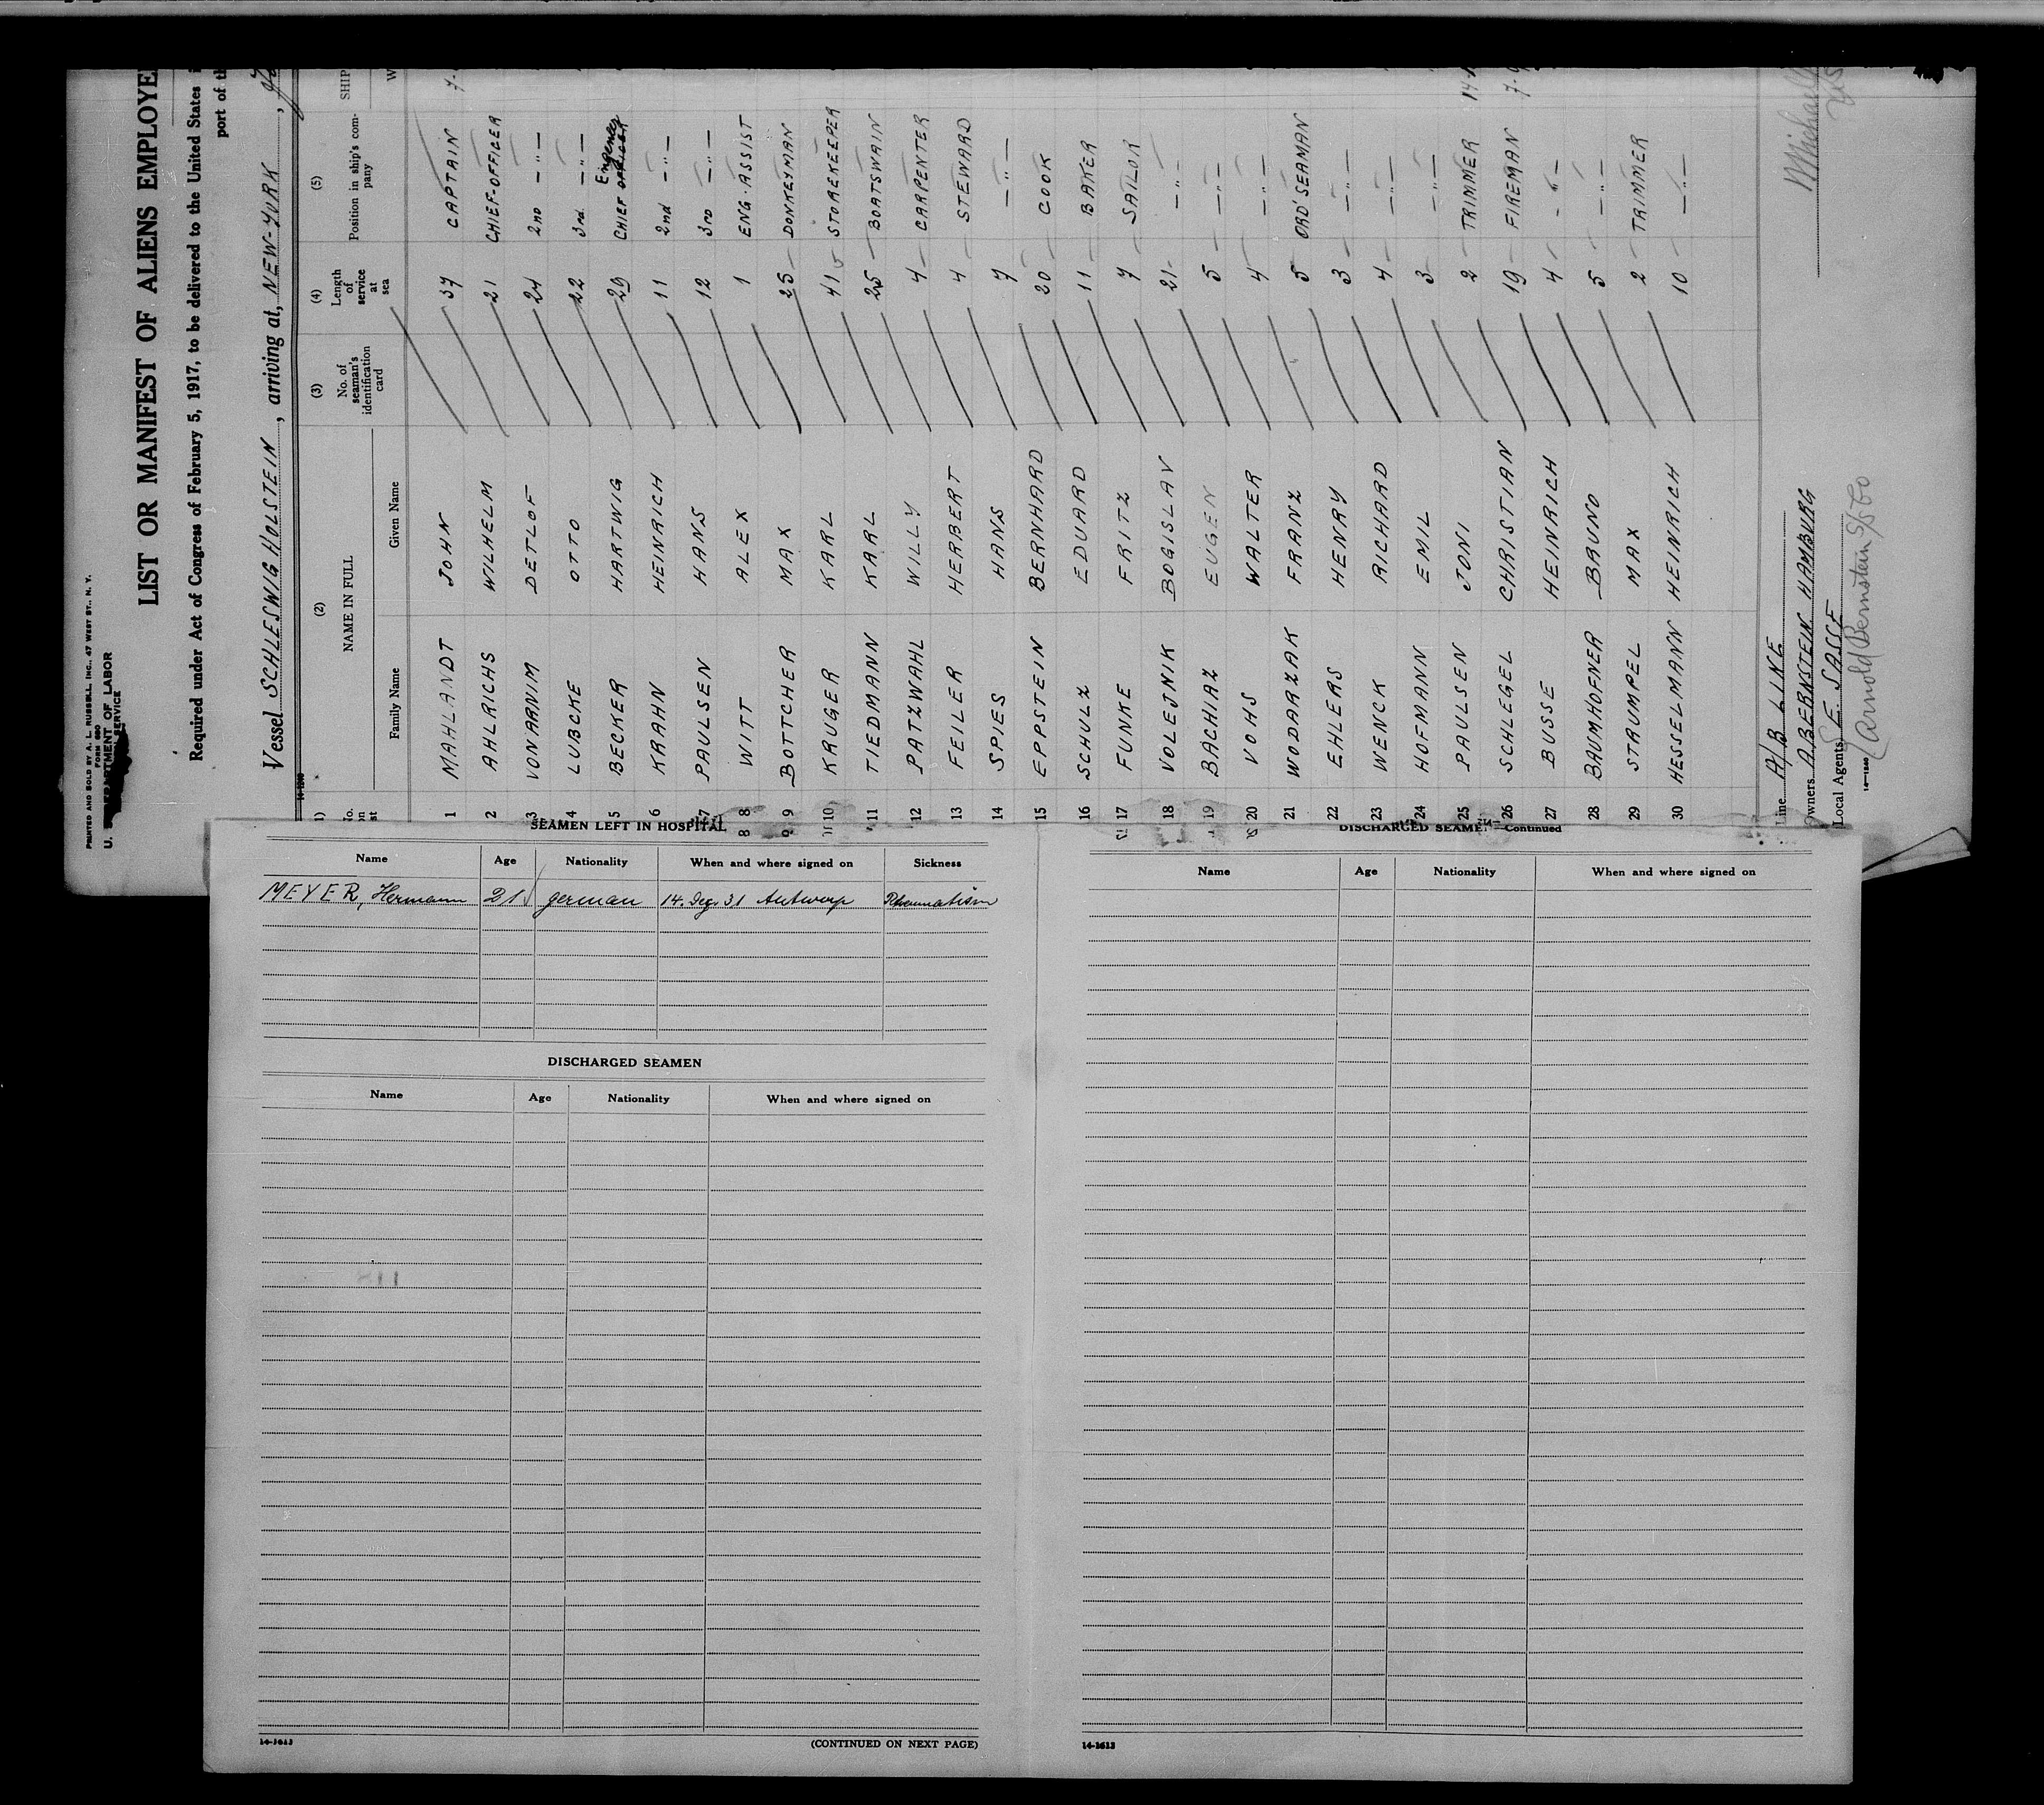 PRINTED AND SOLD BY A. L. RUSSELL, INC., 47 WEST ST., N. Y.
FORM 680
U. S. DEPARTMENT OF LABOR
SERVICE
LIST OR MANIFEST OF ALIENS EMPLOYE
Required under Act of Congress of February 5, 1917, to be delivered to the United States i
port of th
Vessel SCHLESWIG HOLSTEIN, arriving at, NEW-YORK,
(2) (3) (4) (5)
NAME IN FULL No. of seaman's identification card Length of service at sea Position in ship's company SHIP
Family Name Given Name W
1 MAHLANDT JOHN 37 CAPTAIN
2 AHLRICHS WILHELM 21 CHIEF-OFFICER
3 VONARNIM DETLOF 24 2nd —"—
4 LUBCKE OTTO 22 3rd. —"—
5 BECKER HARTWIG 29 CHIEF Engineer
6 KRAHN HEINRICH 11 2nd —"—
7 PAULSEN HANS 12 3rd —"—
8 WITT ALEX 1 ENG. ASSIST
9 BOTTCHER MAX 25 DONKEYMAN
10 KRUGER KARL 41 STOREKEEPER
11 TIEDMANN KARL 25 BOATSWAIN
12 PATZWAHL WILLY 4 CARPENTER
13 FEILER HERBERT 4 STEWARD
14 SPIES HANS 7 —"—
15 EPPSTEIN BERNHARD 20 COOK
16 SCHULZ EDUARD 11 BAKER
17 FUNKE FRITZ 7 SAILOR
18 VOLEJNIK BOGISLAV 21 —"—
19 BACHIAZ EUGEN 5 —"—
20 VOHS WALTER 4 —"—
21 WODARZAK FRANZ 5 ORD' SEAMAN
22 EHLERS HENRY 3 —"—
23 WENCK RICHARD 4 —"—
24 HOFMANN EMIL 3 —"—
25 PAULSEN JONI 2 TRIMMER
26 SCHLEGEL CHRISTIAN 19 FIREMAN
27 BUSSE HEINRICH 4 —"—
28 BAUMHOFNER BRUNO 5 —"—
29 STRUMPEL MAX 2 TRIMMER
30 HESSELMANN HEINRICH 10 —"—
Line A/B LINE
Owners A. BERNSTEIN HAMBURG
Local Agents E. SASSE
Arnold Bernstein S/S Co
SEAMEN LEFT IN HOSPITAL
Name Age Nationality When and where signed on Sickness
MEYER, Hermann 21 german 14. Dez. 31 Antwerp Rheumatism
DISCHARGED SEAMEN
Name Age Nationality When and where signed on
14-1613 (CONTINUED ON NEXT PAGE)
DISCHARGED SEAMEN—Continued
Name Age Nationality When and where signed on
14-1613